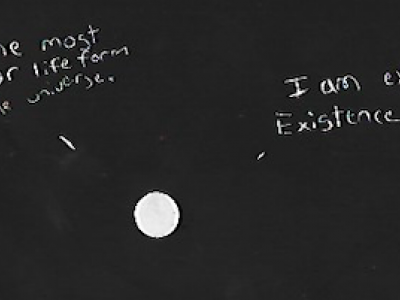 most
life form
universe.
I am
Existence